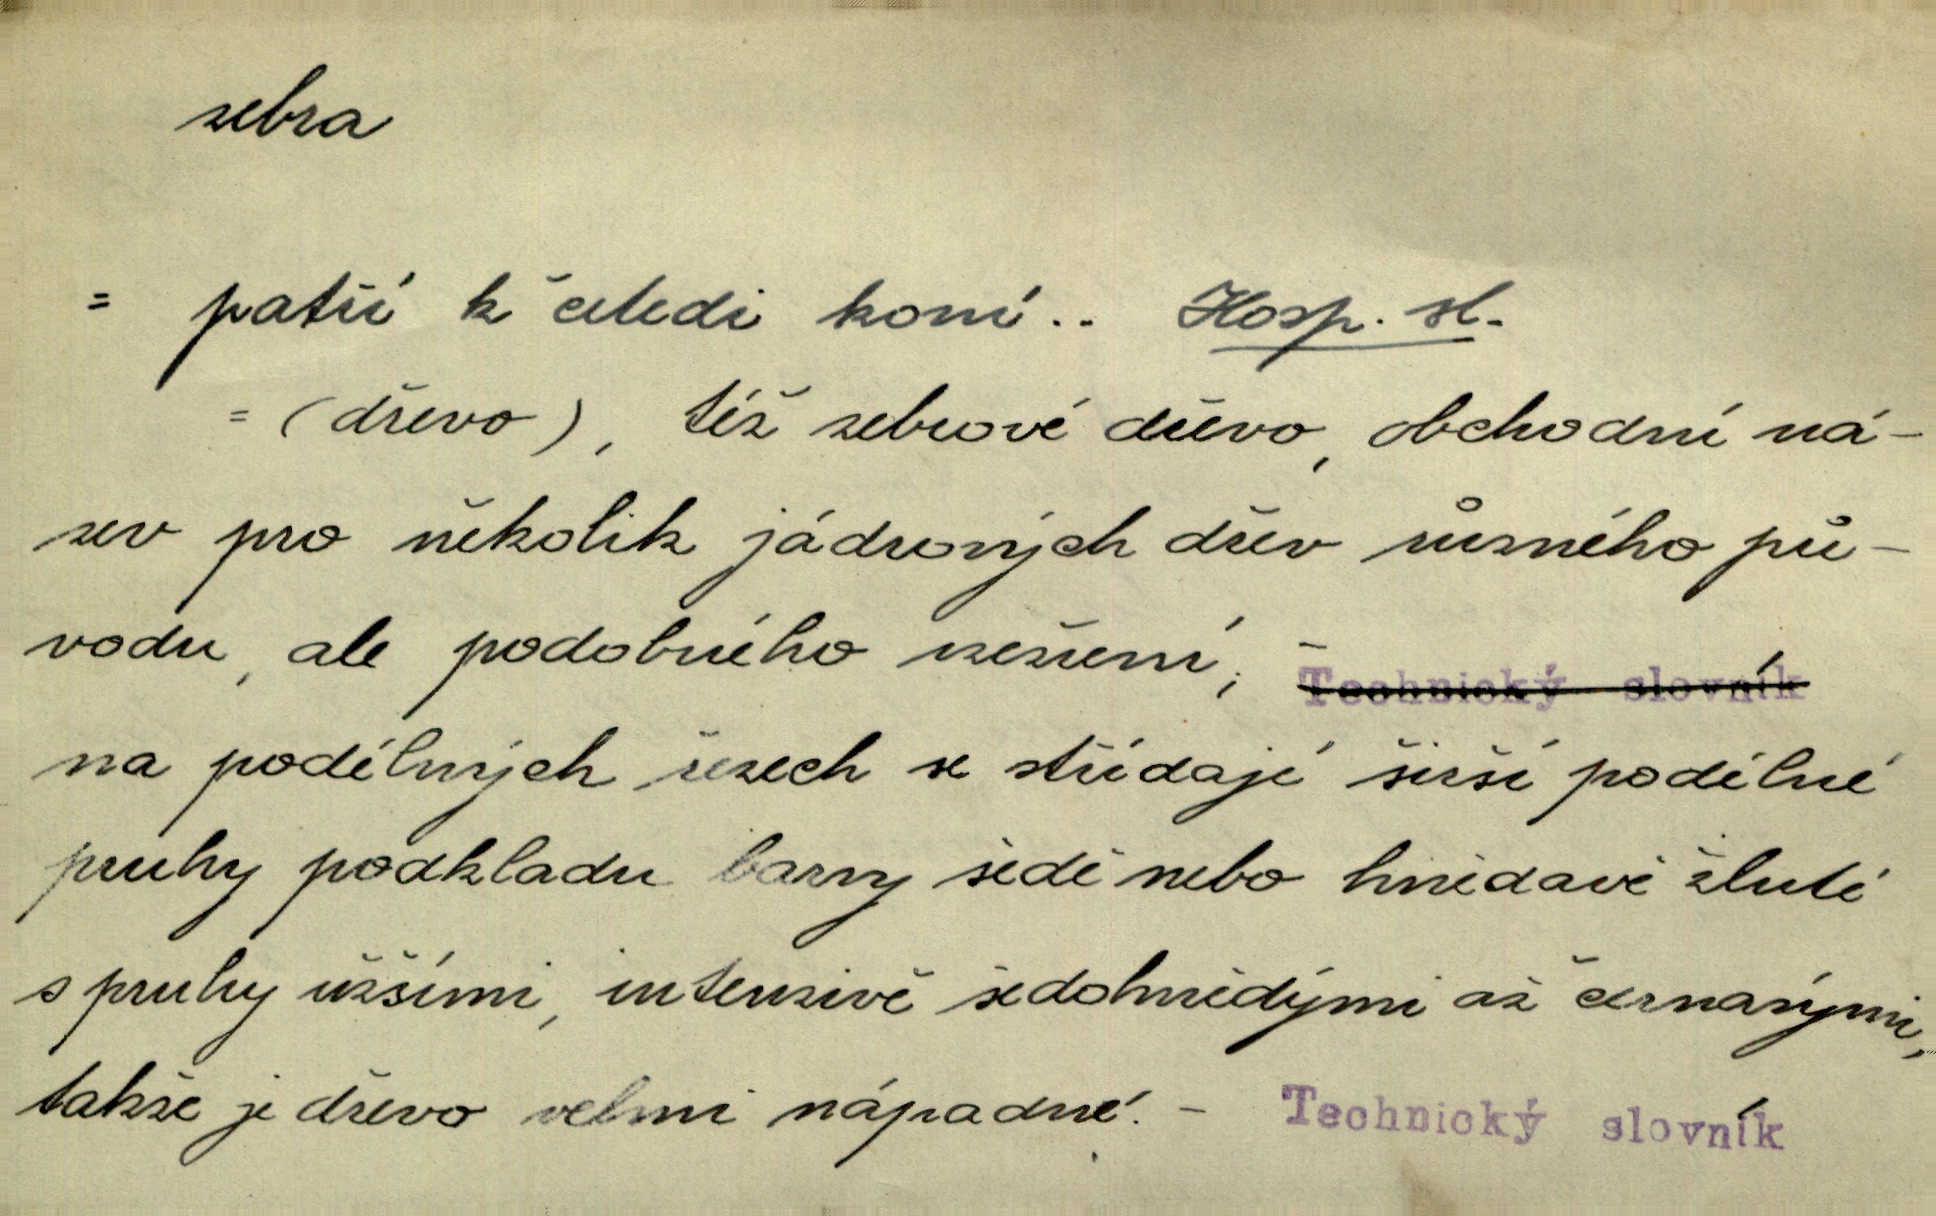 zebra
= patří k čeledi koní.. Hosp. sl.
= (dřevo), též zebrové dřevo, obchodní ná-
zev pro několik jádrových dřev různého pů-
vodu, ale podobného vzezření; – Technický slovník
na podélných řezech se střídají širší podélné
pruhy podkladu barvy šedé nebo hnědavě žluté
s pruhy užšími, intenzivě šedohnědými až černavými,
takže je dřevo velmi nápadné. – Technický slovník